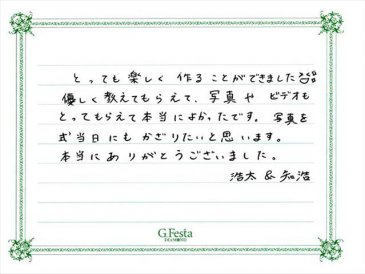 とっても楽しく作ることができました
優しく教えてもらえて、写真や ビデオも
とってもらえて本当によかったです。写真を
式当日にもかざりたいと思います。
本当にありがとうございました。
浩太 & 知浩
G.Festa
DIAMOND